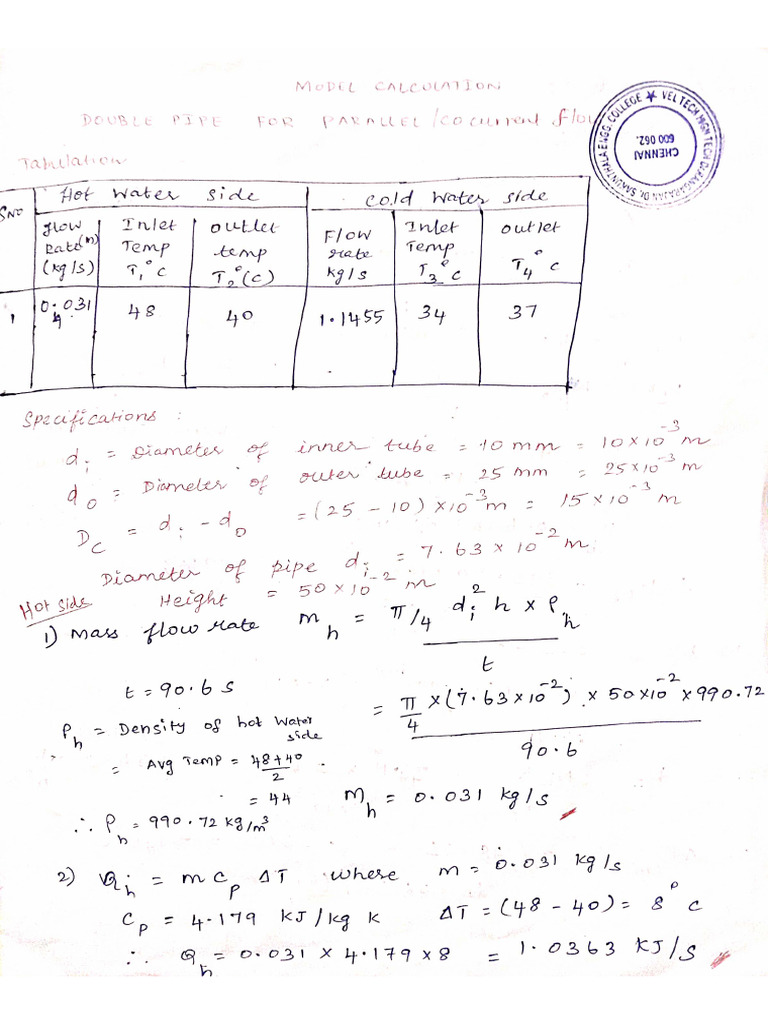 MODEL CALCULATION
DOUBLE PIPE FOR PARALLEL/COCURRENT flow
VEL TECH HIGH TECH DR.RANGARAJAN DR. SAKUNTHALA ENGG. COLLEGE ★
CHENNAI
600 062.
Tabulation
SNO | Hot Water side | Cold Water side
Flow Rate(m) (kg/s) | Inlet Temp T₁°C | Outlet temp T₂°(C) | Flow rate kg/s | Inlet Temp T₃°C | Outlet T₄°C
1 | 0.0314 | 48 | 40 | 1.1455 | 34 | 37
Specifications :
di = Diameter of inner tube = 10 mm = 10×10⁻³ m
do = Diameter of outer tube = 25 mm = 25×10⁻³ m
Dc = di - do = (25 - 10) ×10⁻³ m = 15×10⁻³ m
Diameter of pipe di = 7.63 × 10⁻² m
Height = 50×10⁻² m
Hot side
1) Mass flow rate mh = π/4 di² h × ρh / t
t = 90.6 s
= π/4 × (7.63×10⁻²) × 50×10⁻² × 990.72 / 90.6
ρh = Density of hot water side
= Avg Temp = 48+40 / 2
= 44
Mh = 0.031 kg/s
∴ ρh = 990.72 kg/m³
2) Qh = m Cp ΔT where m = 0.031 kg/s
Cp = 4.179 KJ/kg K ΔT = (48 - 40) = 8°C
∴ Qh = 0.031 × 4.179 × 8 = 1.0363 KJ/S